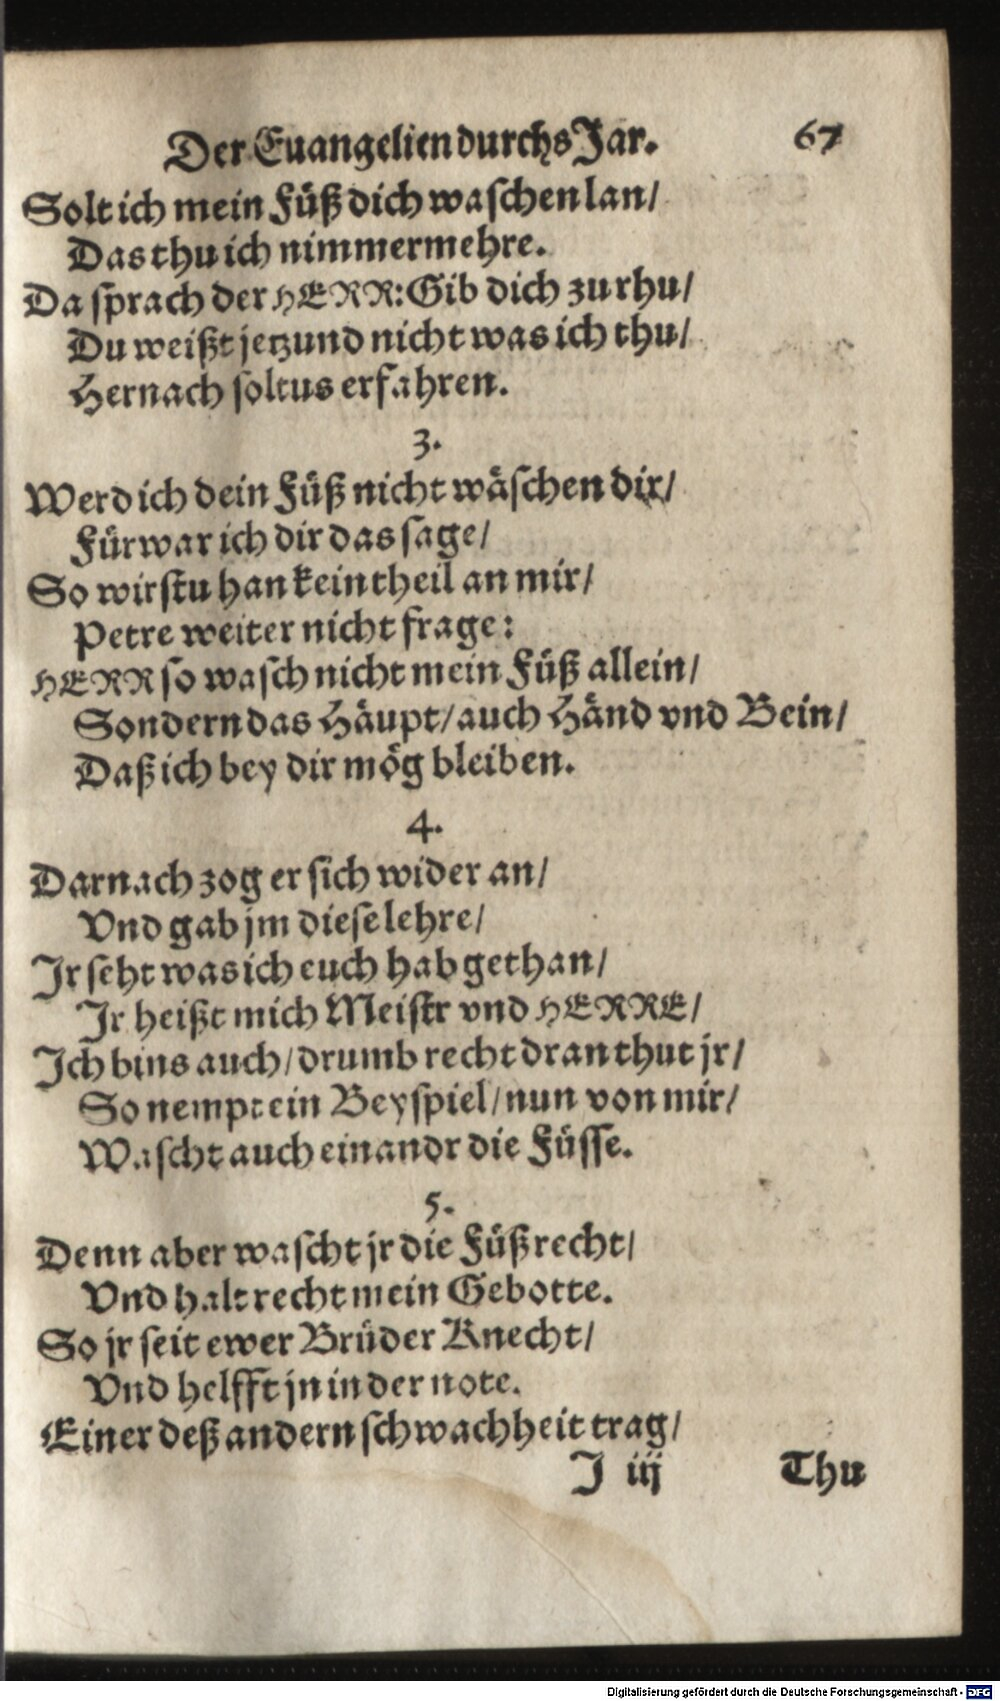 Der Euangelien durchs Jar. 67
Solt ich mein Füß dich waschen lan/
Das thu ich nimmermehre.
Da sprach der HERR: Gib dich zu rhu/
Du weißt jetzund nicht was ich thu/
Hernach soltus erfahren.
3.
Werd ich dein Füß nicht wäschen dir/
Fürwar ich dir das sage/
So wirstu han kein theil an mir/
Petre weiter nicht frage:
HERR so wasch nicht mein Füß allein/
Sondern das Häupt/ auch Händ vnd Bein/
Daß ich bey dir mög bleiben.
4.
Darnach zog er sich wider an/
Vnd gab jm diese lehre/
Jr seht was ich euch hab gethan/
Jr heißt mich Meistr vnd HERRE/
Ich bins auch/ drumb recht dran thut jr/
So nempt ein Beyspiel/ nun von mir/
Wascht auch einandr die Füsse.
5.
Denn aber wascht jr die Füß recht/
Vnd halt recht mein Gebotte.
So jr seit ewer Brüder Knecht/
Vnd helfft jn in der note.
Einer deß andern schwachheit trag/
J iij Thu
Digitalisierung gefördert durch die Deutsche Forschungsgemeinschaft - DFG